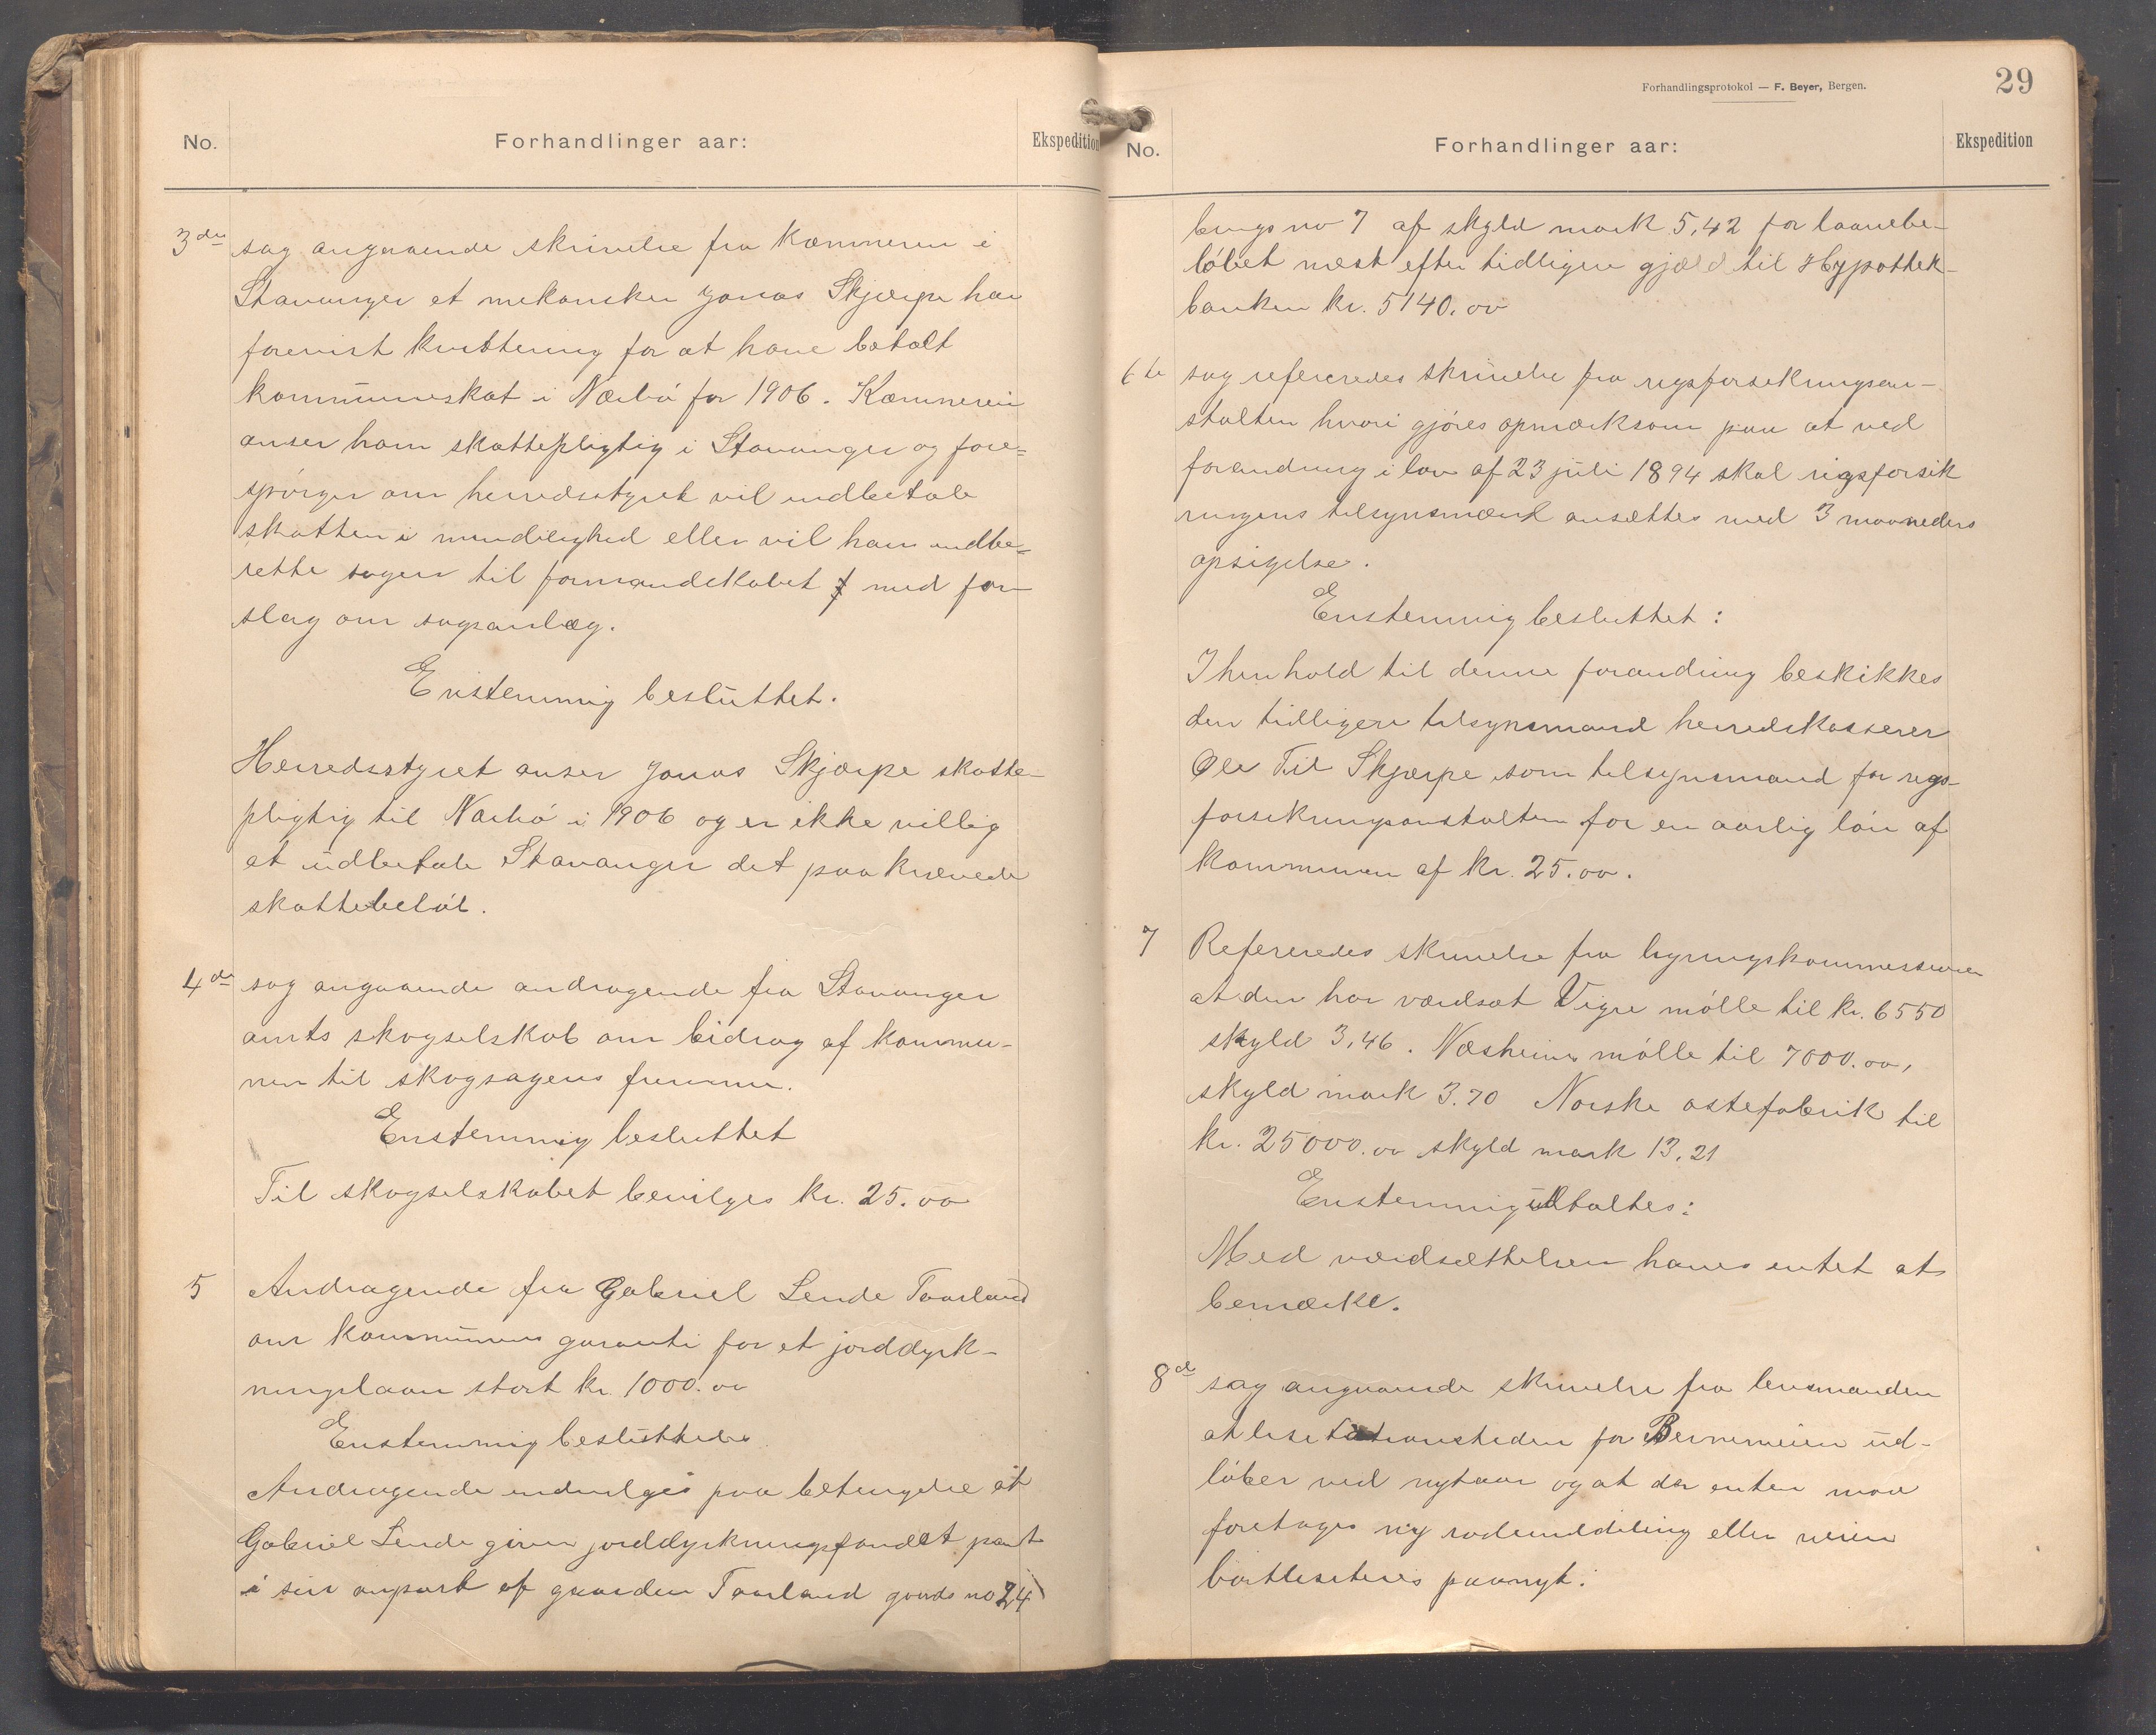 No.
Forhandlinger aar:
Ekspedition
3die
sag angaaende skrivelse fra kæmneren i
Stavanger at mekaniker Jonas Skjærpe har
forevist kvittering for at have betalt
kommuneskat i Nærbø for 1906. Kæmneren
anser ham skattepligtig i Stavanger og fore=
spørger om herredsstyret vil indbetale
skatten i mindelighed eller vil han indbe=
rette sagen til formandskabet med for
slag om sagsanlæg.
Enstemmig besluttet.
Herredsstyret anser Jonas Skjærpe skatte-
pligtig til Nærbø i 1906 og er ikke villig
at udbetale Stavanger det paakrævede
skattebeløb.
4de
sag angaaende andragende fra Stavanger
amts skogselskab om bidrag af kommu-
nen til skogsagens fremme.
Enstemmig besluttet
Til skogselskabet bevilges kr. 25.00
5
Andragende fra Gabriel Lende Taarland
om kommunens garanti for et jorddyrk-
ningslaan stort kr. 1000.00
Enstemmig besluttedes
Andragende indvilges paa betingelse at
Gabriel Lende giver jorddyrkningsfondet pant
i sin anpart af gaarden Taarland gaards no 24
Forhandlingsprotokol — F. Beyer, Bergen.
29
No.
Forhandlinger aar:
Ekspedition
brugs no 7 af skyld mark 5,42 for laanebe-
løbet næst efter tidligere gjæld til Hypothek-
banken kr. 5140.00
6te
sag refereredes skrivelse fra rigsforsikringsan-
stalten hvori gjøres opmærksom paa at ved
forandring i lov af 23 juli 1894 skal rigsforsik
ringens tilsynsmænd ansættes med 3 maaneders
opsigelse.
Enstemmig besluttet:
I henhold til denne forandring beskikkes
den tidligere tilsynsmand herredskasserer
Ole Til Skjærpe som tilsynsmand for rigs-
forsikringsanstalten for en aarlig løn af
kommunen af kr. 25.00.
7
Refereredes skrivelse fra ligningskommissionen
at den har værdsat Vigre mølle til kr. 6550
skyld 3,46. Næsheim mølle til 7000.00,
skyld mark 3.70 Norske ostefabrik til
kr. 25000.00 skyld mark 13,21
Enstemmig udtaltes:
Med værdsættelsen haves intet at
bemærke.
8de
sag angaaende skrivelse fra lensmanden
at lisitationstiden for veien ud-
løber ved nytaar og at der enten maa
foretages ny rodeinddeling eller veien
bortlisiteres paanyt.